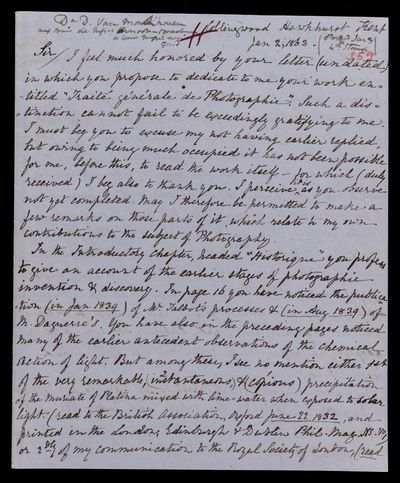 Dr D. Van Monckhoven
Collingwood Hawkhurst Kent
Jan 2, 1863.
Sir/ I feel much honored by your letter (undated)
in which you propose to dedicate to me your work en-
-titled "Traité générale de Photographie". Such a dis-
-tinction cannot fail to be exceedingly gratifying to me.
I must beg you to excuse my not having earlier replied,
but owing to being much occupied it has not been possible
for me, before this, to read the work itself – for which (duly
received) I beg also to thank you. I perceive as you observe
not yet completed. May I therefore be permitted to make a
few remarks on those parts of it which relate to my own
contributions to the subject of Photography.
In the Introductory Chapter, headed "Historique" you profess
to give an account of the earlier stages of photographic
invention & discovery. In page 16 you have noticed the publica-
-tion (in Jan 1839) of Mr Talbot's processes & (in Aug 1839) of
M. Daguerre's. You have also in the preceding pages noticed
many of the earlier antecedent observations of the chemical
action of light. But among these, I see no mention either 1st
of the very remarkable (instantaneous & copious) precipitation
of the Muriate of Platina mixed with lime-water when exposed to solar
light (read to the British Association, Oxford June 22 1832, and
printed in the London, Edinburgh & Dublin Phil. Mag.
or 2dly of my communication to the Royal Society of London, (read